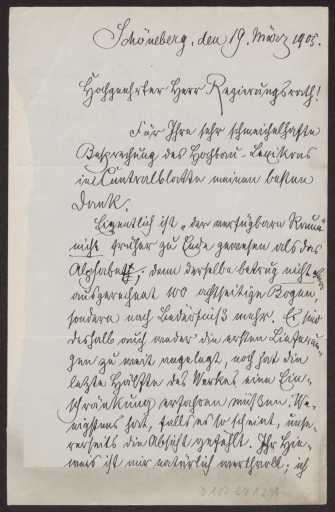 Schöneberg, den 19. März 1905.
Hochgeehrter Herr Regierungsrath!
Für Ihre sehr schmeichelhafte
Besprechung des Hochbau-Lexikons
im Centralblatte meinen besten
Dank.
Eigentlich ist "der verfügbare Raum
nicht früher zu Ende gewesen als das
Alphabet"; denn derselbe betrug nicht
ausgerechnet 100 achtseitige Bogen,
sondern nach Bedürfniß mehr. Es sind
deshalb auch weder die ersten Lieferun-
gen zu weit angelegt, noch hat die
letzte Hälfte des Werkes eine Ein-
schränkung erfahren müssen. We-
nigstens hat, falls es so scheint, unse-
rerseits die Absicht gefehlt. Ihr Hin-
weis ist mir natürlich werthvoll; ich